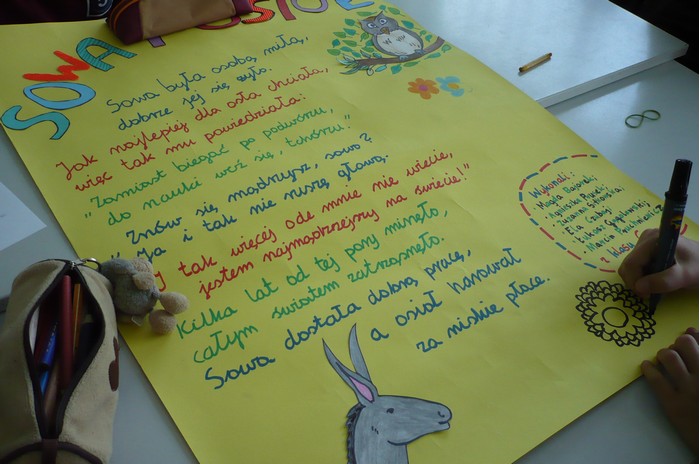 SOWA
Sowa była osobą miłą,
dobrze jej się żyło.
Jak najlepiej dla osła chciała,
więc tak mu powiedziała:
"Zamiast biegać po podwórzu,
do nauki weź się, tchórzu."
Znów się mądrzysz, sowo?
Ja i tak nie ruszę głową.
I tak więcej ode mnie nie wiecie,
jestem najmądrzejszy na świecie!"
Kilka lat od tej pory minęło,
całym światem zatrzęsnęło.
Sowa dostała dobrą pracę,
a osioł harował
za niskie płace.
Wykonali:
Magda
Zuzanna
Eia
z klasy